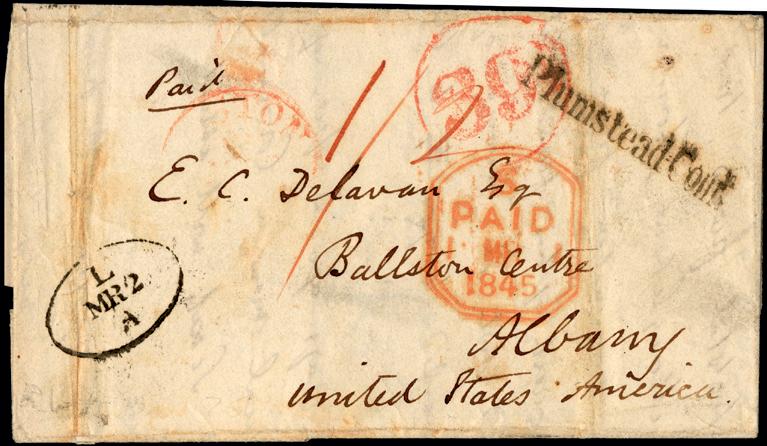 Paid
39
Plumstead Com
1/2
E. C. Delavan Esq
PAID
1845
Ballston Centre
L
MR 2
A
Albany
United States America.